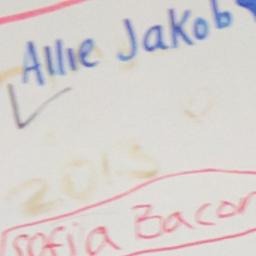 Allie Jakob
2013
Sofia Bacon